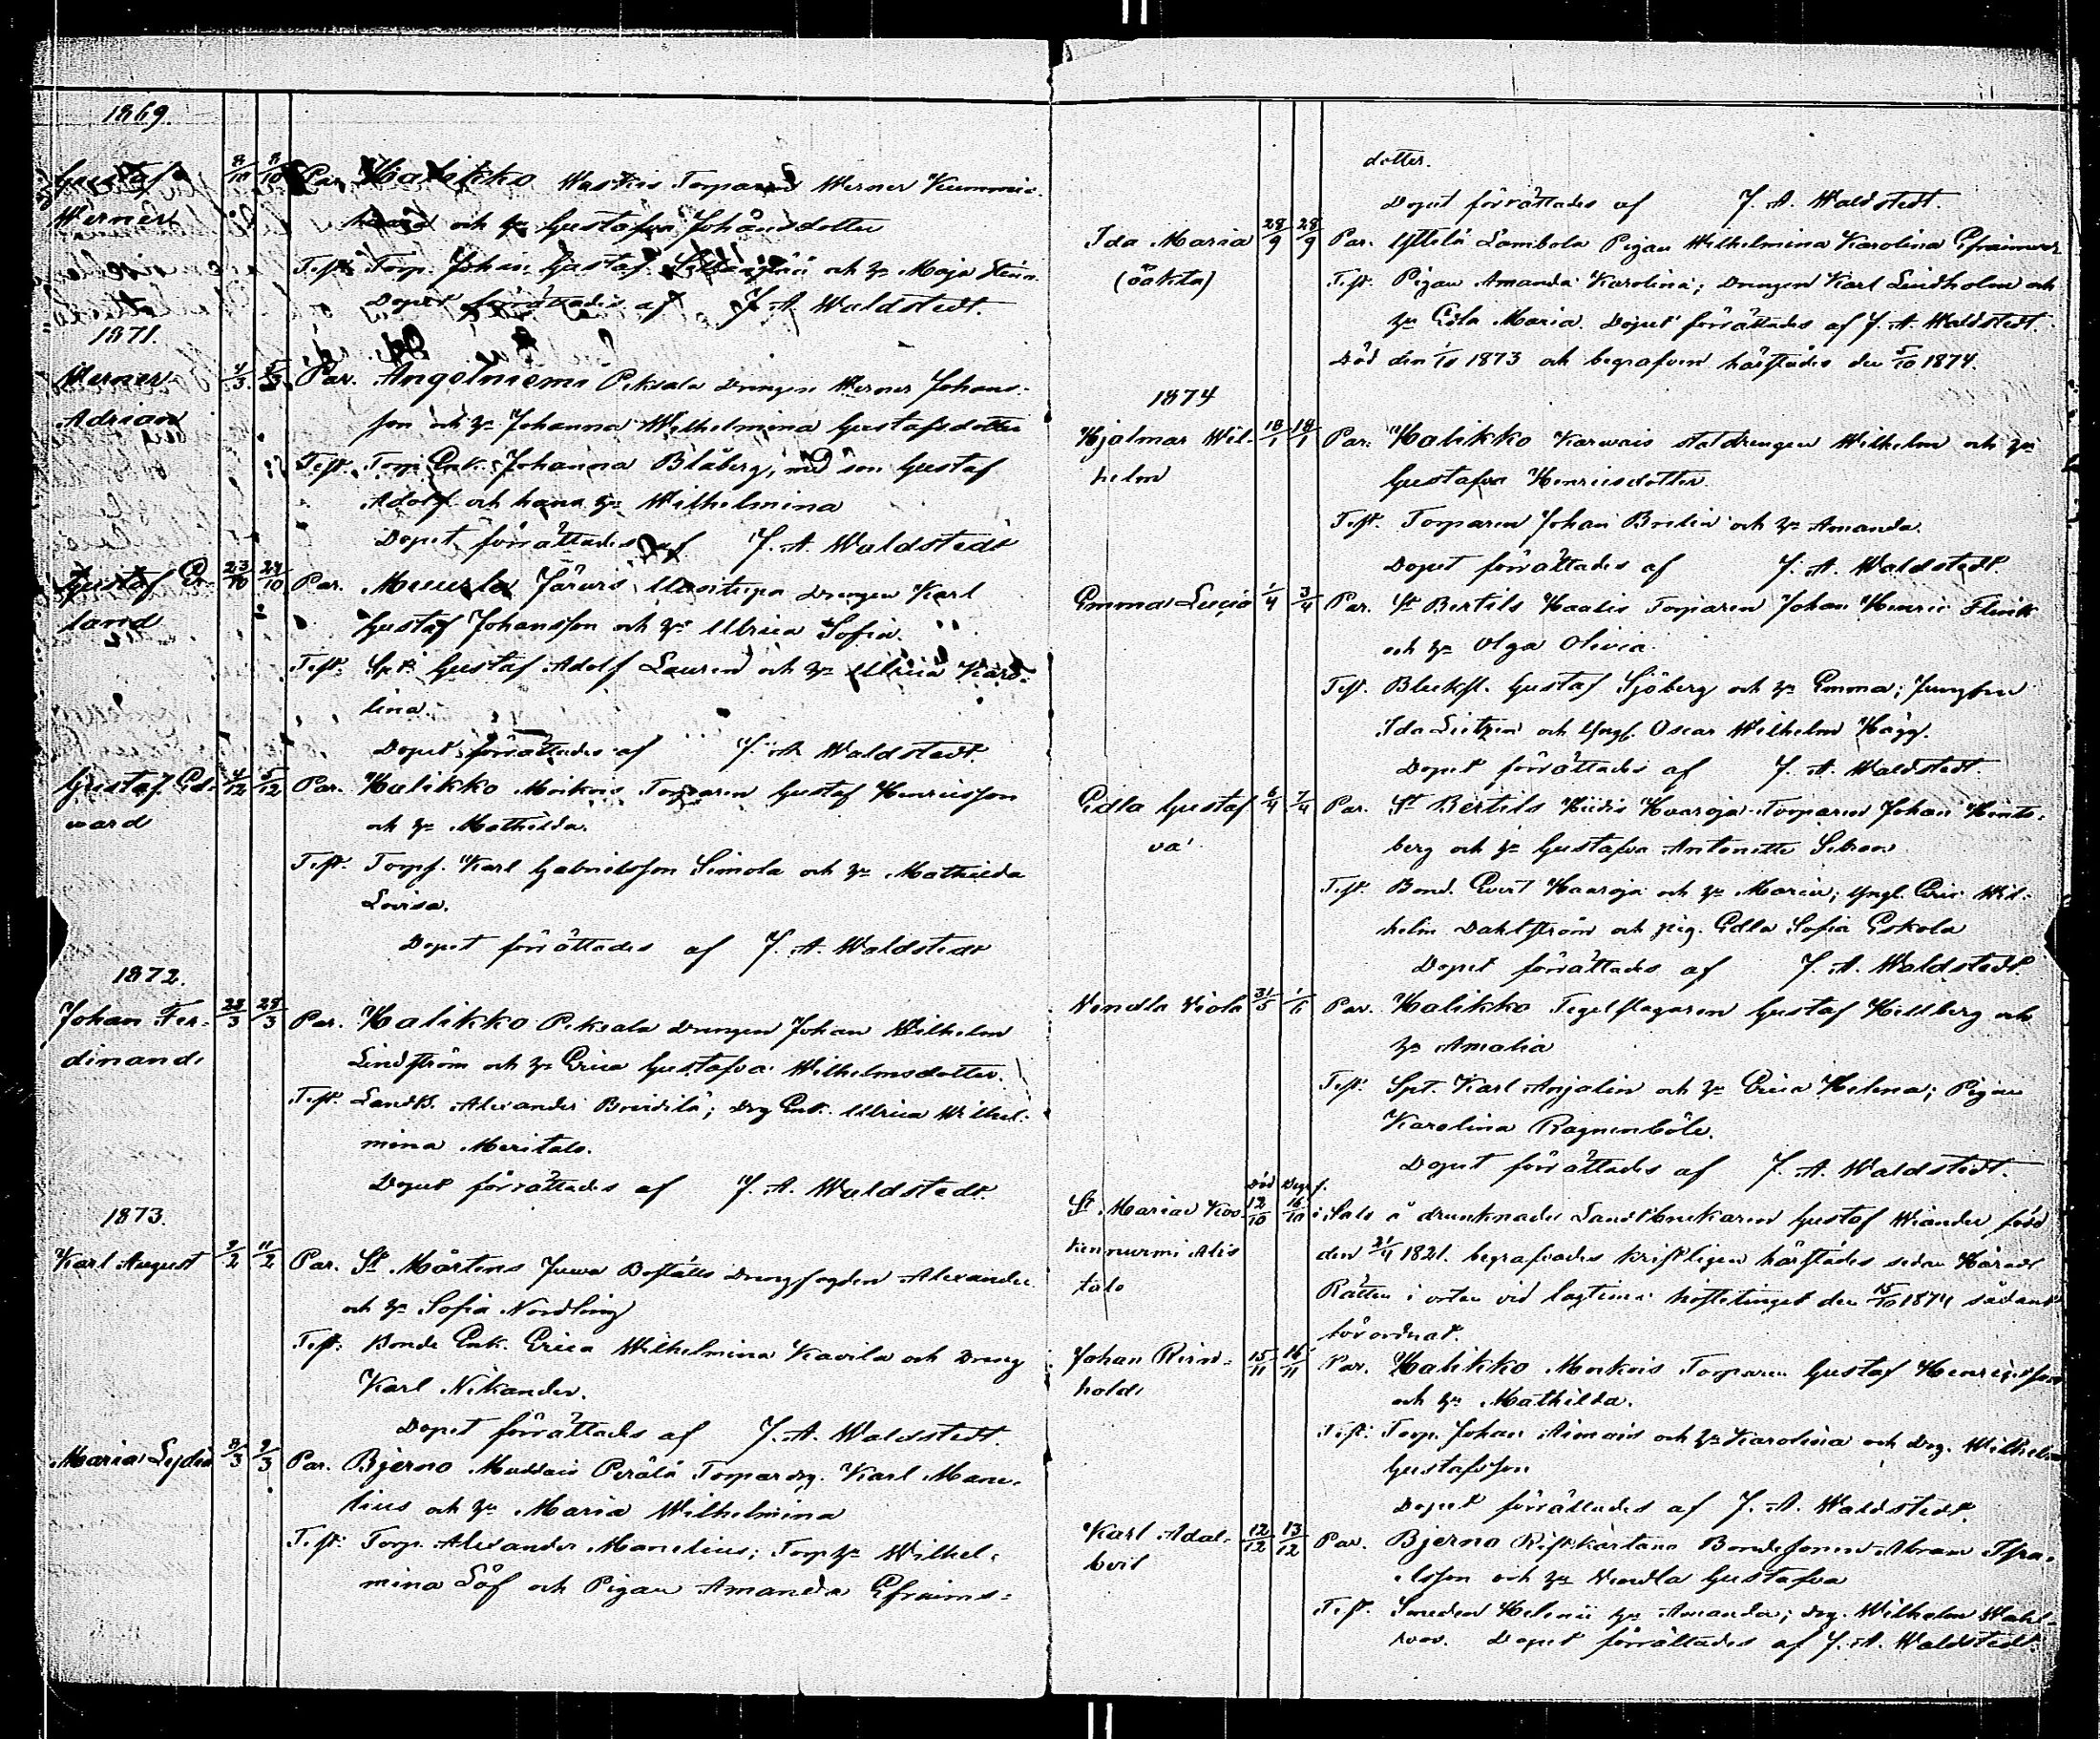 1869.
Gustaf 8/10 8/10 Par. Halikko Waskis Torparen Werner
Werner och h:u Gustafva Johansdotter
Test. Torp. Johan Gustaf och h:u Maja Stina
Dopet förrättades af J. A. Waldstedt.
1871.
Werner 4/3 5/3 Par. Angelniemi Peksala Drengen Werner Johans-
Adrian son och h:u Johanna Wilhelmina Gustafsdotter
Test. Torp. Enk. Johanna Blåberg, med son Gustaf
Adolf och hans h:u Wilhelmina
Dopet förrättades af J. A. Waldstedt
Gustaf Er- 23/10 24/10 Par. Muurla Järvis drengen Karl
land Gustaf Johansson och h:u Ulrica Sofia.
Test. Spt. Gustaf Adolf Lauren och h:u Ulrica Karo-
lina.
Dopet förrättades af J. A. Waldstedt.
Gustaf Ed- 4/12 5/12 Par. Halikko Moikois Torparen Gustaf Henricsson
vard och h:u Mathilda.
Test. Torps. Karl Gabrielsson Simola och h:u Mathilda
Lovisa.
Dopet förrättades af J. A. Waldstedt
1872.
Johan Fer- 23/3 28/3 Par. Halikko Peksala Drengen Johan Wilhelm
dinand Lindström och h:u Erica Gustafva Wilhelmsdotter.
Test. Landb. Alexander Breidilä; Drg Enk. Ulrica Wilhel-
mina Meritalo.
Dopet förrättades af J. A. Waldstedt.
1873.
Karl August 9/2 11/2 Par. S:t Mårtens Juva Boställs Drengfogden Alexander
och h:u Sofia Nordling
Test. Bonde Enk. Erica Wilhelmina Kavila och Dreng
Karl Nikander.
Dopet förrättades af J. A. Waldstedt.
Maria Lydia 8/3 9/3 Par. Bjerno Perälä Torpar drg. Karl Mane-
lius och h:u Maria Wilhelmina
Test. Torp. Alexander Manelius; Torp h:u Wilhel-
mina Löf och Pigan Amanda Efraims-
dotter.
Dopet förrättades af J. A. Waldstedt.
Ida Maria 28/9 28/9 Par. Yttelä Lambola Pigan Wilhelmina Karolina
(oäkta) Test. Pigan Amanda Karolina; Drengen Karl Lindholm och
h:u Edla Maria. Dopet förrättades af J. A. Waldstedt.
Död den 1/10 1873 och begrafven härstädes den 5/10 1874.
1874
Hjalmar Wil- 18/1 18/1 Par. Halikko Karvais statdrengen Wilhelm och h:u
helm Gustafva Henricsdotter.
Test. Torparen Johan Brelin och h:u Amanda
Dopet förrättades af J. A. Waldstedt.
Emma Lucia 1/4 3/4 Par. S:t Bertils Haalis Torparen Johan Henric Flinik
och h:u Olga Olivia.
Test. Blecksl. Gustaf Sjöberg och h:u Emma; Jungfrun
Ida Lietzen och Yngl. Oscar Wilhelm Hägg.
Dopet förrättades af J. A. Waldstedt.
Edla Gustaf- 6/4 7/4 Par. S:t Bertils Hiidis Haaroja Torparen Johan Hints-
va berg och h:u Gustafva Antonette
Test. Bond. Evert Haaroja och h:u Maria; Yngl. Eric Wil-
helm Dahlström och pig. Edla Sofia Eskola
Dopet förrättades af J. A. Waldstedt.
Wendla Viola 31/5 1/6 Par. Halikko Tegelslagaren Gustaf Hellberg och
h:u Amalia
Test. Spt. Karl Anjalin och h:u Erica Helena; Pigan
Karolina Ragnenböle.
Dopet förrättades af J. A. Waldstedt.
Död Begrf.
S:t Mariæ Koo- 12/10 16/10 i Salo å drunknade Landtbrukaren Gustaf Wiander född
kennurmi Alis den 21/4 1821. begrafvades kristligen härstädes sedan Härads
talo Rätten i orten vid lagtima hösttinget den 15/10 1874 sådant
förordnat.
Johan Rein- 15/11 16/11 Par. Halikko Moikois Torparen Gustaf Henricsson
hold och h:u Mathilda.
Test. Torp. Johan Aimois och h:u Karolina och drg. Wilhelm
Gustafsson
Dopet förrättades af J. A. Waldstedt.
Karl Adal- 12/12 13/12 Par. Bjerno Ristkartano Bondesonen Abram Isra-
bert elsson och h:u Wendla Gustafva
Test. Smeden Helenii h:u Amanda; drg. Wilhelm Wahl-
roos. Dopet förrättades af J. A. Waldstedt.